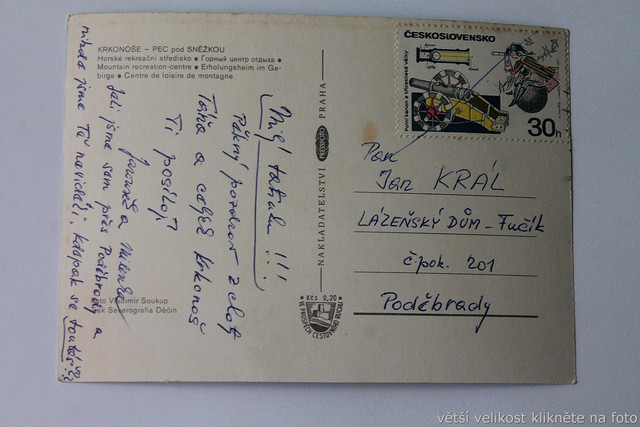 KRKONOŠE – PEC pod SNĚŽKOU
Horské rekreační středisko • Горный центр отдыха •
Mountain recreation-centre • Erholungsheim im Ge-
birge • Centre de loisire de montagne
Milý tatínku !!!
Pěkný pozdrav z chat
Táňa a celé Krkonoš
Ti posílají
Jaroušek a Milenka
Jeli jsme sem přes Poděbrady a
nikde jsme Tě neviděli. Kdapak se touláš?
Foto Vladimír Soukup
Tisk Severografia Děčín
NAKLADATELSTVÍ PRESSFOTO PRAHA
Kčs 0,20
VE PROSPĚCH CESTOVNÍHO RUCHU
ČESKOSLOVENSKO
Polní kanon z třicetileté války
30h
Pan
Jan KRÁL
LÁZEŇSKÝ DŮM – Fučík
č. pok. 201
Poděbrady
větší velikost klikněte na foto